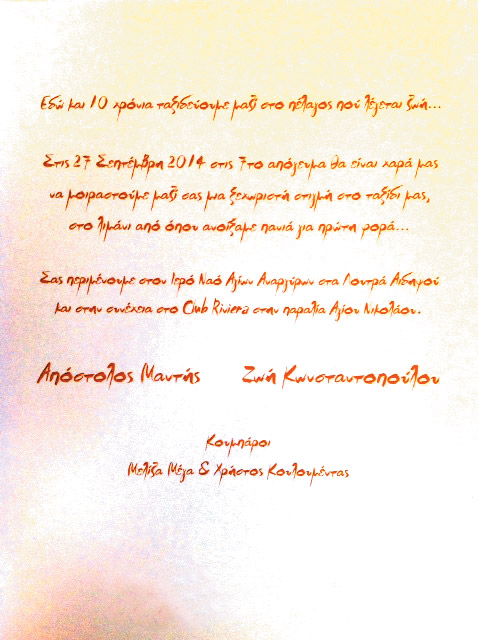 Εδώ και 10 χρόνια ταξιδεύουμε μαζί στο πέλαγος πού λέγεται ζωή...
Στις 27 Σεπτέμβρη 2014 στις 7το απόγευμα θα είναι χαρά μας
να μοιραστούμε μαζί σας μια ξεχωριστή στιγμή στο ταξίδι μας,
στο λιμάνι από όπου ανοίξαμε πανιά για πρώτη φορά...
Σας περιμένουμε στον Ιερό Ναό Αγίων Αναργύρων στα Λουτρά Αιδηψού
και στην συνέχεια στο Club Riviera στην παραλία Αγίου Νικολάου.
Απόστολος Μαντής Ζωή Κωνσταντοπούλου
Κουμπάροι
Μελίζα Μέγα & Χρήστος Κουλουμέντας